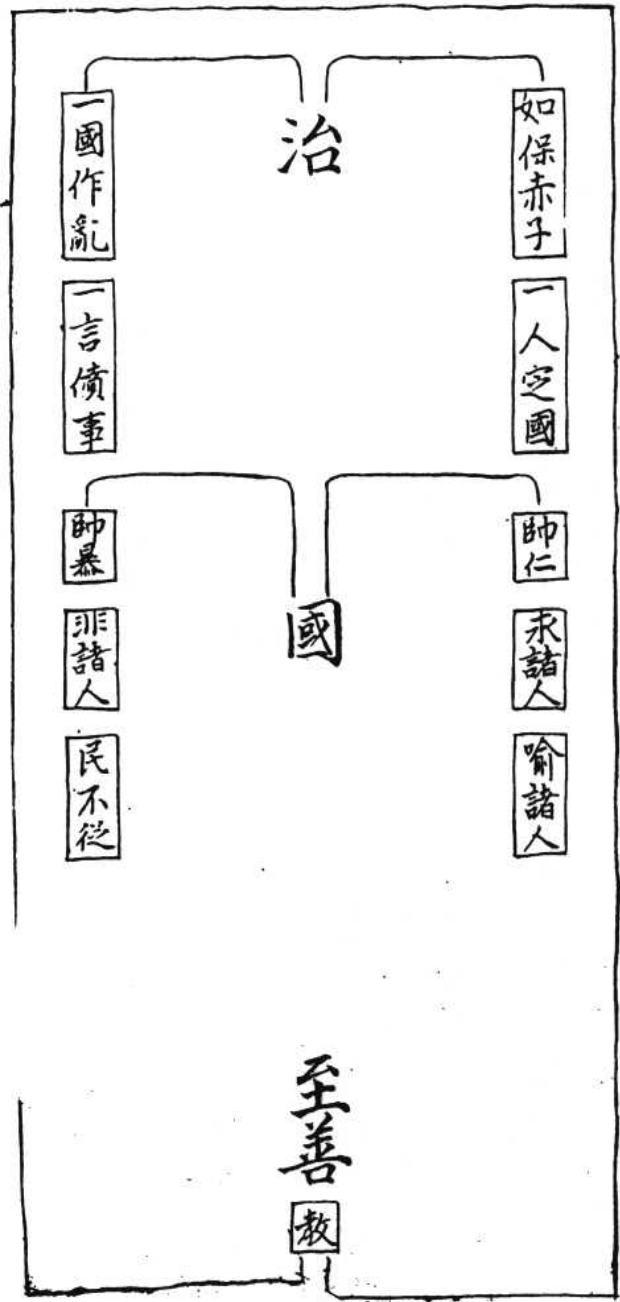 治
如保赤子
一人定國
一國作亂
一言僨事
國
帥仁
求諸人
喻諸人
帥暴
非諸人
民不從
至善
教